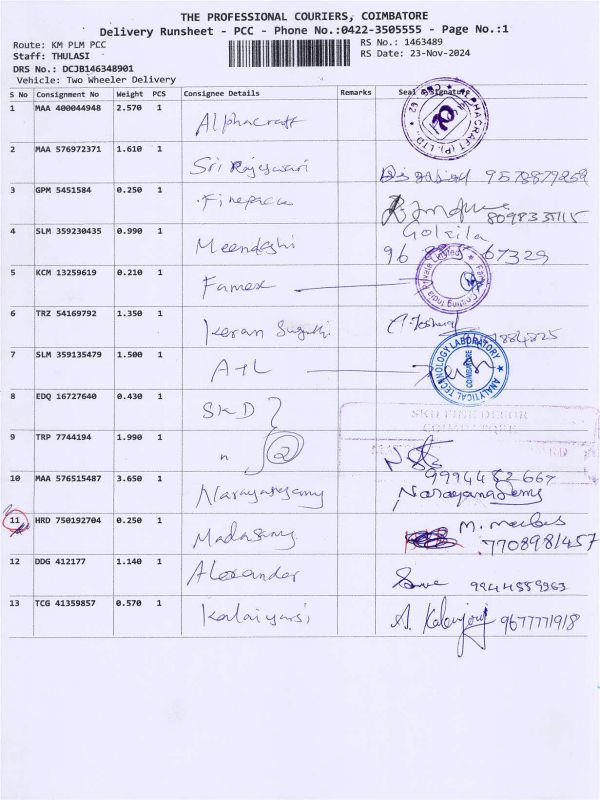 THE PROFESSIONAL COURIERS, COIMBATORE
Delivery Runsheet - PCC - Phone No.:0422-3505555 - Page No.:1
Route: KM PLM PCC
RS No.: 1463489
Staff: THULASI
RS Date: 23-Nov-2024
DRS No.: DCJB146348901
Vehicle: Two Wheeler Delivery
S No Consignment No Weight PCS Consignee Details Remarks Seal & Signature
1 MAA 400044948 2.570 1 Alphacraft ALPHACRAFT (P) LTD. 70
2 MAA 576972371 1.610 1 Sri Rajeswari
3 GPM 5451584 0.250 1 8098335115
4 SLM 359230435 0.990 1 Meenakshi Gokila
5 KCM 13259619 0.210 1 Famex
6 TRZ 54169792 1.350 1
7 SLM 359135479 1.500 1 ATL ANALYTICAL TECHNOLOGY LABORATORY COIMBATORE
8 EDQ 16727640 0.430 1 SKD SKD FINE DECOR
COIMBATORE
9 TRP 7744194 1.990 1 " 2
10 MAA 576515487 3.650 1 Narayanasamy 9994482667
Narayanasamy
11 HRD 750192704 0.250 1 Madasamy 7708981457
12 DDG 412177 1.140 1 Alexander 9944559363
13 TCG 41359857 0.570 1 Kalaiyarsi 9677771918